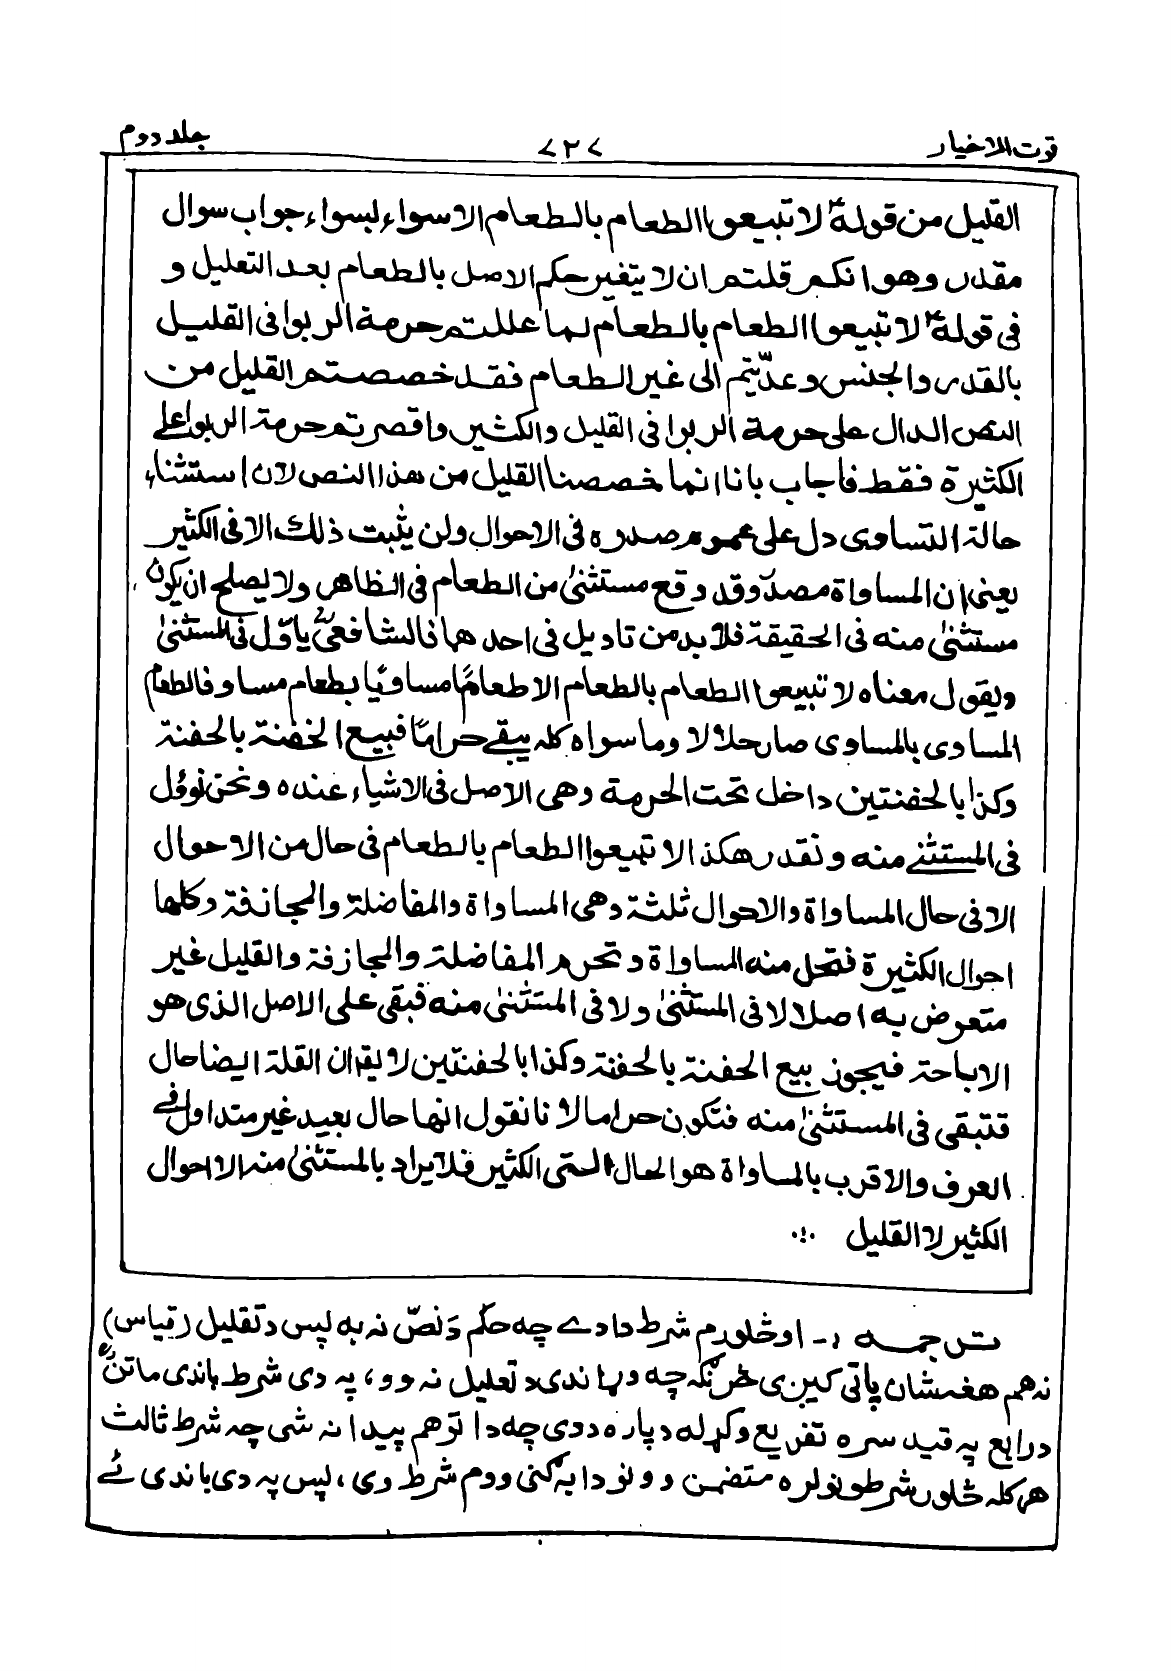 قوت الاخیار ۷۲۷ جلد دوم
القلیل من قولہؑ لا تبیعوا الطعام بالطعام الا سواء بسواء جواب سوال
مقدر وهو انکم قلتم ان لا یتغیر حکم الاصل بالطعام بعد التعلیل و
فی قولهؑ لا تبیعوا الطعام بالطعام لما عللتم حرمة الربوا فی القلیل
بالقدر والجنس وعدّیتم الی غیر الطعام فقد خصصتم القلیل من
النص الدال علی حرمة الربوا فی القلیل والکثیر واقصرتم حرمة الربوا علے
الکثیرة فقط فأجاب بانا انما خصصنا القلیل من هذا النص لان استثناء
حالة التساوی دل علی عموم صدره فی الاحوال ولن یثبت ذلك الا فی الکثیر
یعنی ان المساواة مصدر وقد وقع مستثنیٰ من الطعام فی الظاهر ولا یصلح ان یکون
مستثنیٰ منه فی الحقیقة فلا بد من تاویل فی احدهما فالشافعیؒ یاوّل فی المستثنیٰ
ویقول معناه لا تبیعوا الطعام بالطعام الا طعامًا مساویًا بطعام مساو فالطعام
المساوی بالمساوی صار حلالا وما سواه کله یبقے حراماً فبیع الحفنة بالحفنة
وکذا بالحفنتین داخل تحت الحرمة وهی الاصل فی الاشیاء عنده ونحن نوؤل
فی المستثنے منه ونقدر هکذا لا تبیعوا الطعام بالطعام فی حال من الاحوال
الا فی حال المساواة والاحوال ثلثة وهی المساواة والمفاضلة والمجازفة وکلها
احوال الکثیرة فتحل منه المساواة وتحرم المفاضلة والمجازفة والقلیل غیر
متعرض به اصلا لا فی المستثنیٰ ولا فی المستثنیٰ منه فبقی علی الاصل الذی هو
الاباحة فیجوز بیع الحفنة بالحفنة وکذا بالحفنتین لا یقم ان القلة ایضا حال
فتبقی فی المستثنیٰ منه فتکون حراما لا نا نقول انها حال بعید غیر متداول فے
العرف والاقرب بالمساواة هو الحال الکثیر فلا یراد بالمستثنیٰ منه الا احوال
الکثیر لا القلیل
ترجمه :- او څلورم شرط دا دے چه حکم دَ نصّ نه به پس د تعلیل (قیاس)
نه هم هغه شان پاتی کیږی څرنګه چه وړاندی د تعلیل نه وو، په دی شرط باندی ماتنؒ
د رابع په قید سره تفریع وکړله د پاره ددی چه دا توهم پیدا نه شی چه شرط ثالث
هر کله څلور شرطونو لره متضمن وو نو دا به کنی ووم شرط وی، پس په دی باندی ئے